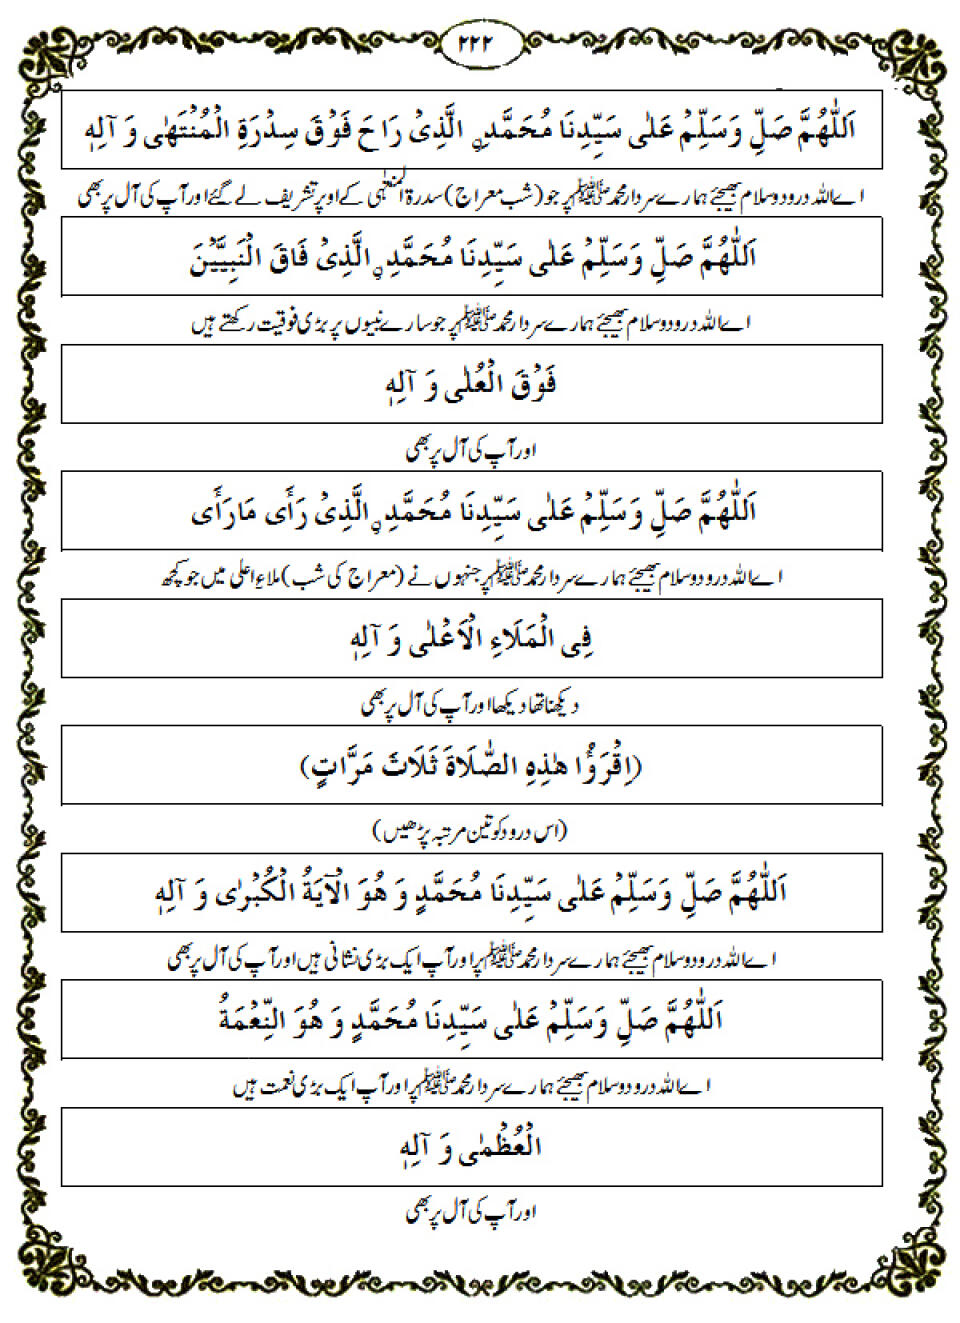 ۲۲۲
اَللّٰهُمَّ صَلِّ وَسَلِّمْ عَلٰى سَيِّدِنَا مُحَمَّدِ ۣ الَّذِىْ رَاحَ فَوْقَ سِدْرَةِ الْمُنْتَهٰى وَ آلِهٖ
اے اللہ درود و سلام بھیجئے ہمارے سردار محمد ﷺ پر جو (شب معراج) سدرۃ المنتہٰی کے اوپر تشریف لے گئے اور آپ کی آل پر بھی
اَللّٰهُمَّ صَلِّ وَسَلِّمْ عَلٰى سَيِّدِنَا مُحَمَّدِ ۣ الَّذِىْ فَاقَ النَّبِيِّيْنَ
اے اللہ درود و سلام بھیجئے ہمارے سردار محمد ﷺ پر جو سارے نبیوں پر بڑی فوقیت رکھتے ہیں
فَوْقَ الْعُلٰى وَ آلِهٖ
اور آپ کی آل پر بھی
اَللّٰهُمَّ صَلِّ وَسَلِّمْ عَلٰى سَيِّدِنَا مُحَمَّدِ ۣ الَّذِىْ رَأَى مَا رَأَى
اے اللہ درود و سلام بھیجئے ہمارے سردار محمد ﷺ پر جنہوں نے (معراج کی شب) ملاءِ اعلی میں جو کچھ
فِى الْمَلَاءِ الْاَعْلٰى وَ آلِهٖ
دیکھنا تھا دیکھا اور آپ کی آل پر بھی
(اِقْرَؤُا هٰذِهِ الصَّلَاةَ ثَلَاثَ مَرَّاتٍ)
(اس درود کو تین مرتبہ پڑھیں)
اَللّٰهُمَّ صَلِّ وَسَلِّمْ عَلٰى سَيِّدِنَا مُحَمَّدٍ وَ هُوَ الْآيَةُ الْكُبْرٰى وَ آلِهٖ
اے اللہ درود و سلام بھیجئے ہمارے سردار محمد ﷺ پر اور آپ ایک بڑی نشانی ہیں اور آپ کی آل پر بھی
اَللّٰهُمَّ صَلِّ وَسَلِّمْ عَلٰى سَيِّدِنَا مُحَمَّدٍ وَ هُوَ النِّعْمَةُ
اے اللہ درود و سلام بھیجئے ہمارے سردار محمد ﷺ پر اور آپ ایک بڑی نعمت ہیں
الْعُظْمٰى وَ آلِهٖ
اور آپ کی آل پر بھی